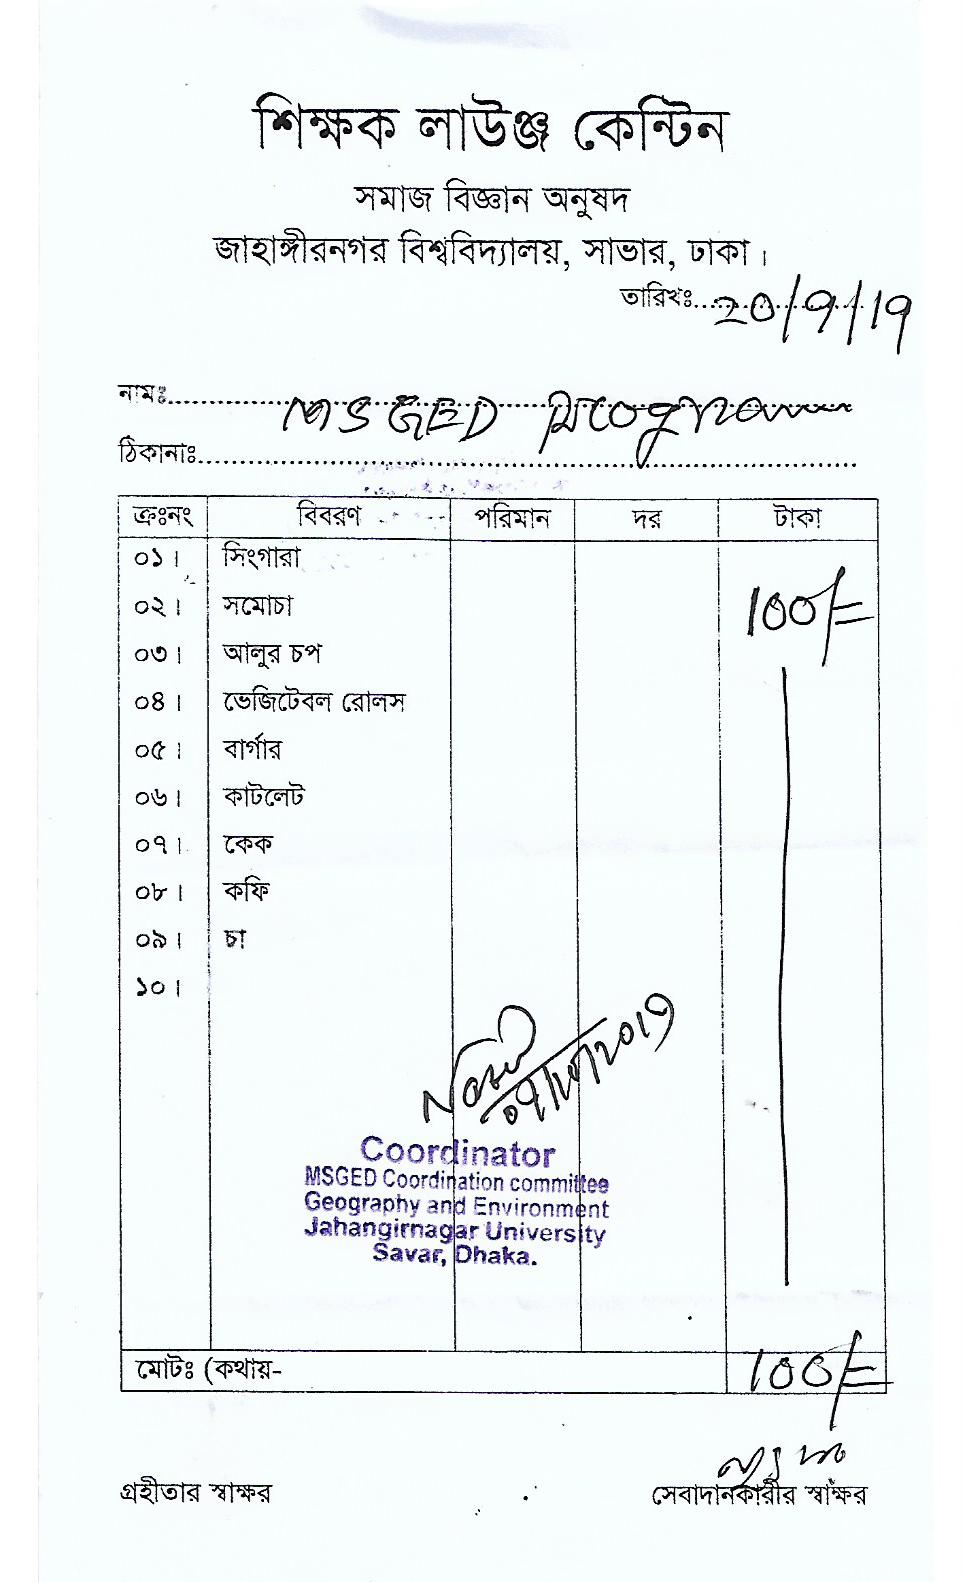 শিক্ষক লাউঞ্জ কেন্টিন
সমাজ বিজ্ঞান অনুষদ
জাহাঙ্গীরনগর বিশ্ববিদ্যালয়, সাভার, ঢাকা।
তারিখঃ 20/9/19
নামঃ MSGED Program
ঠিকানাঃ
ক্রঃনং বিবরণ পরিমান দর টাকা
০১। সিংগারা
০২। সমোচা 100/=
০৩। আলুর চপ
০৪। ভেজিটেবল রোলস
০৫। বার্গার
০৬। কাটলেট
০৭। কেক
০৮। কফি
০৯। চা
১০।
Coordinator
MSGED Coordination committee
Geography and Environment
Jahangirnagar University
Savar, Dhaka.
মোটঃ (কথায়- 100/=
গ্রহীতার স্বাক্ষর সেবাদানকারীর স্বাক্ষর